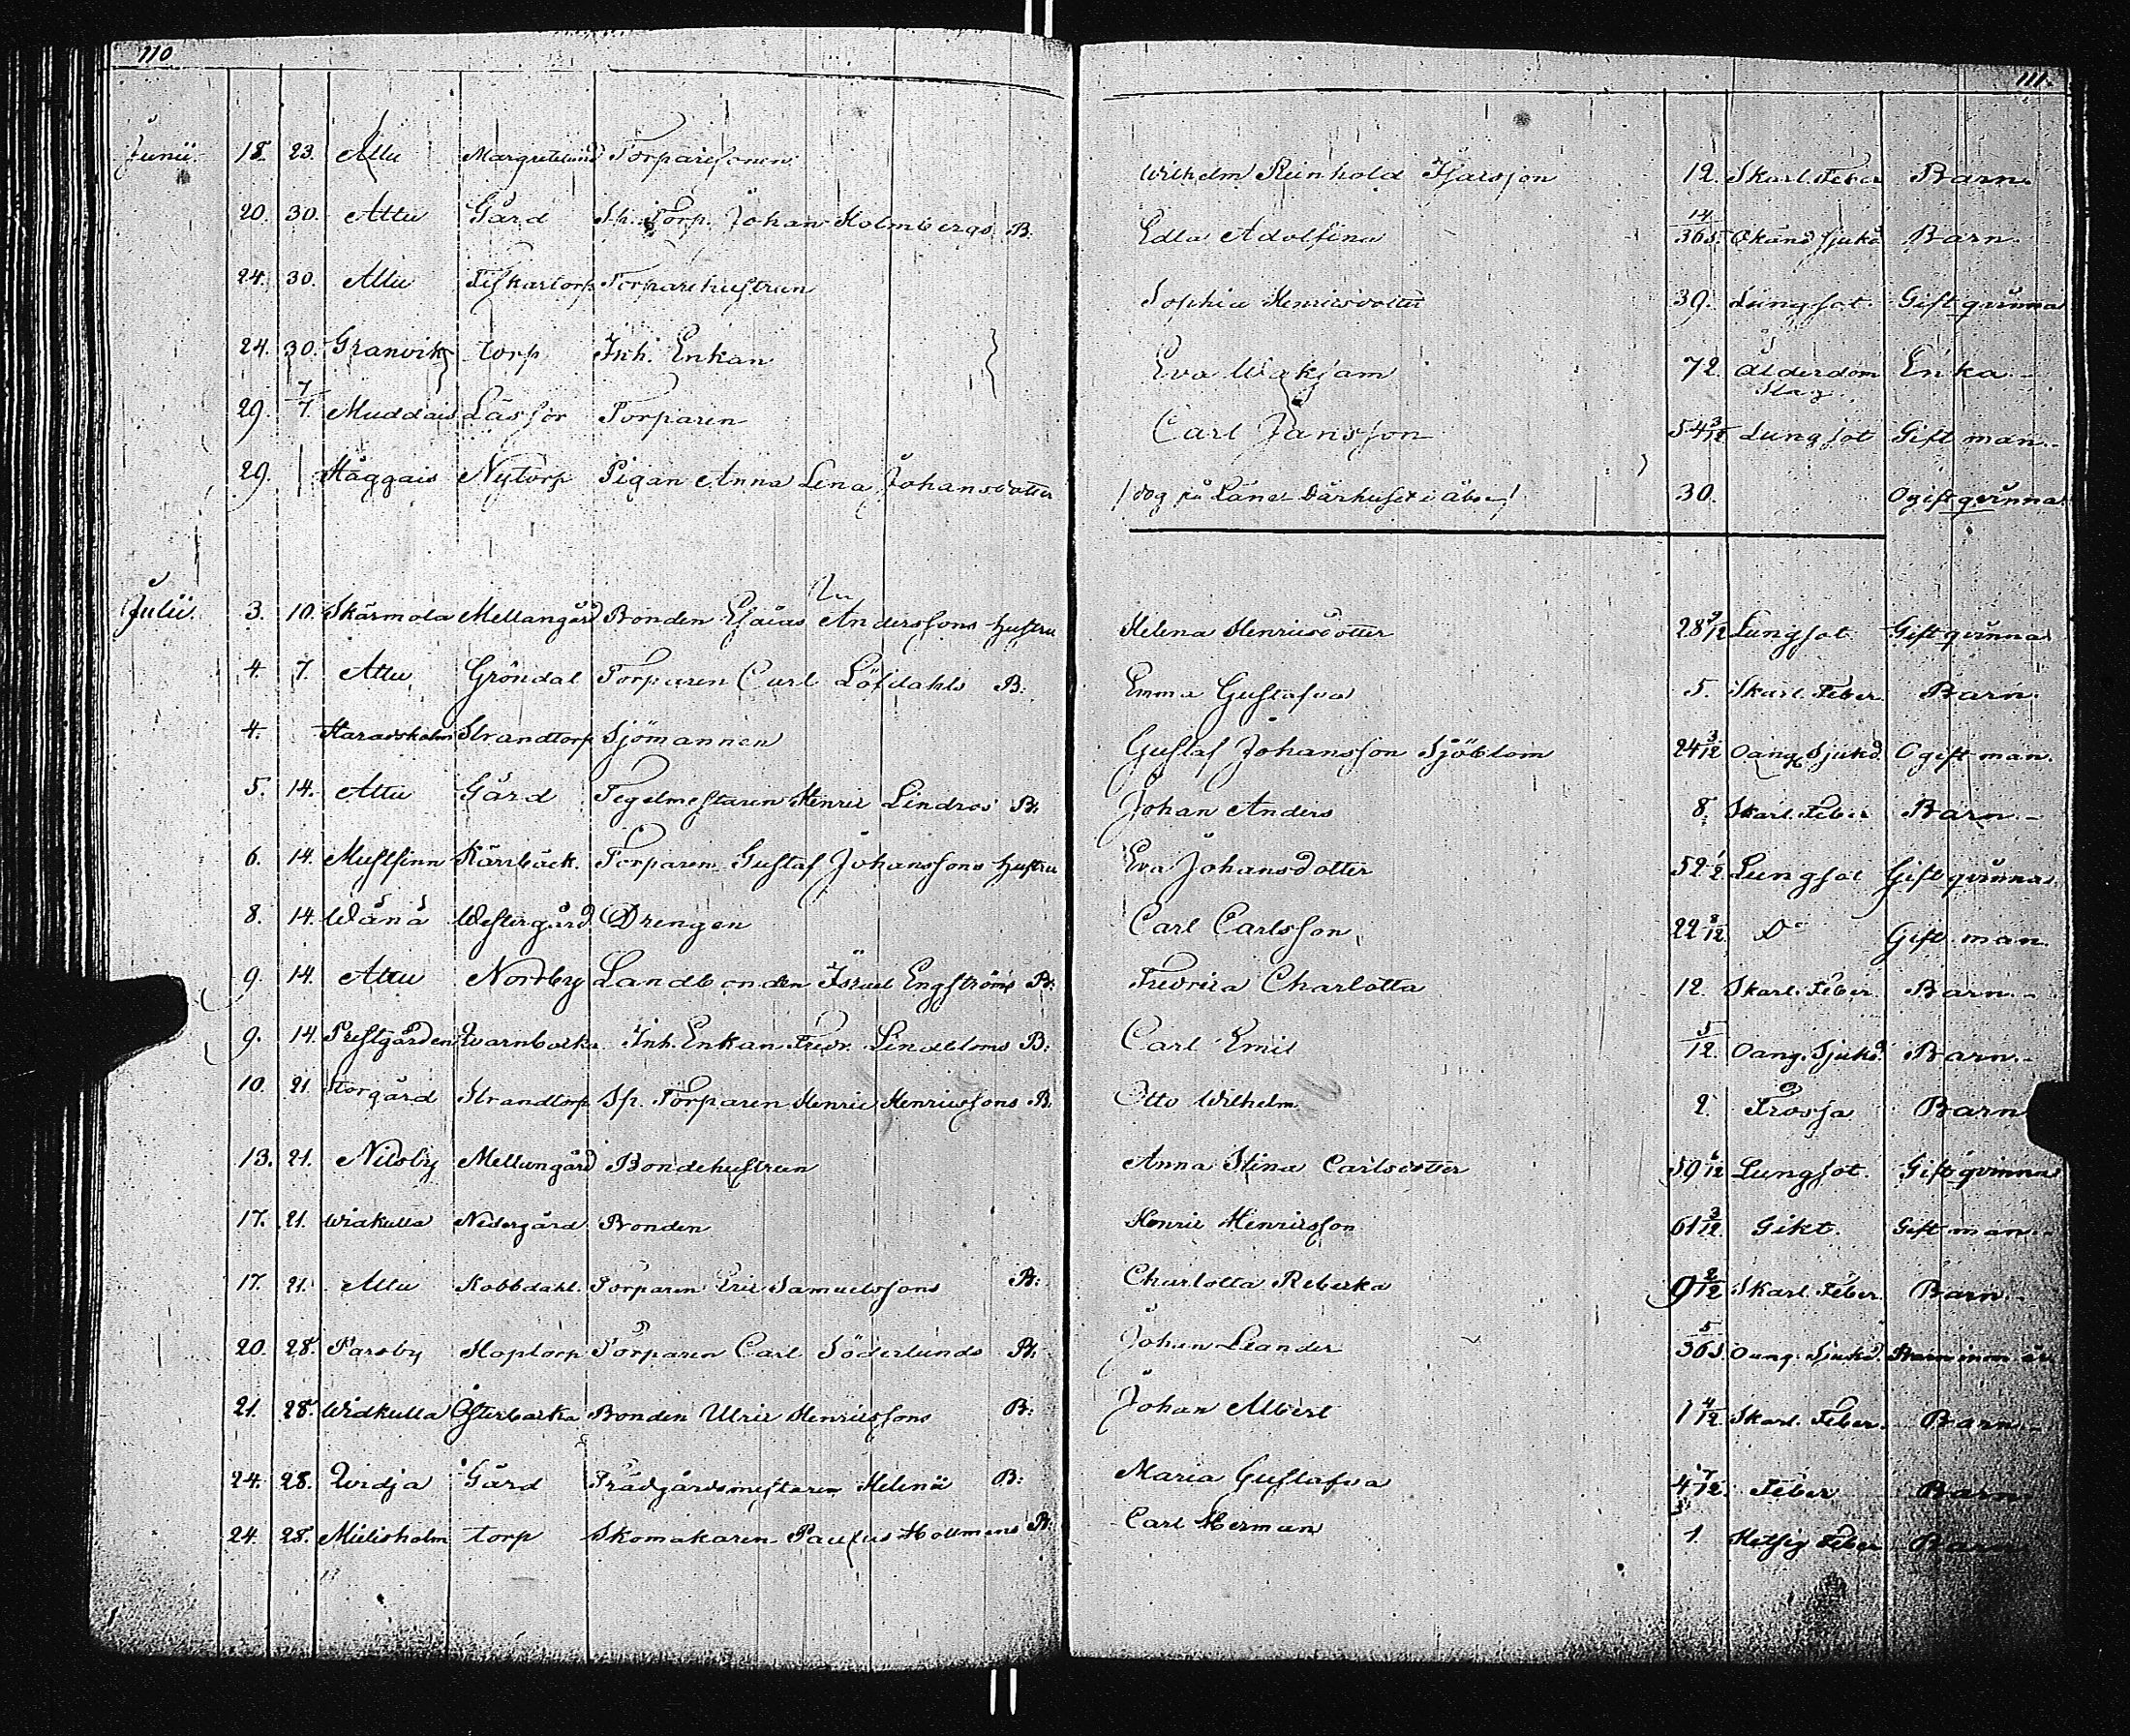 110
111.
Junii. 18. 23. Attu Margretelund Torparesonen Wilhelm Reinhold Isacsson 12. Skarl. Feber Barn.
20. 30. Attu Gård Torp. Johan Holmbergs B. Edla Adolfina 14/365. Okänd sjukd Barn.
24. 30. Attu Fiskartorp Torparehustrun Sophia Henricsdotter 39. Lungsot. Gift qvinna
24. 30. Granvik torp Inh. Enkan Eva Wakjam 72. Ålderdom Slag. Enka.
29. 7/7. Muddais Torparen Carl Jansson 54 3/12 Lungsot Gift man.
29. Haggais Nytorp Pigan Anna Lena Johansdotter / dog på Läne Dårhuset i Åbo / 30. Ogift qvinna
Julii. 3. 10. Skärmola Mellangård Bonden Esaias Anderssons hustru Helena Henricsdotter 28 9/12 Lungsot. Gift qvinna
4. 7. Attu Gröndal Torparen Carl Löfdahls B: Emma Gustafva 5. Skarl. Feber. Barn.
4. Haradsholm Strandtorp Sjömannen Gustaf Johansson Sjöblom 24 3/12 Oang. Sjukd. Ogift man.
5. 14. Attu Gård Tegelmestaren Henric Lindros B: Johan Anders 8. Skarl. Feber Barn.
6. 14. Mustfinn Kärrbäck. Torparen Gustaf Johanssons hustru Eva Johansdotter 52 1/2 Lungsot Gift qvinna.
8. 14. Wånå Westergård Drengen Carl Carlsson 22 8/12 Do Gift man
9. 14. Attu Nordby Landbonden Israel Engströms B: Fredrica Charlotta 12. Skarl. Feber. Barn.
9. 14. Prestgården Qvarnbacka Inh. Enkan Fredr. Lindbloms B: Carl Emil 5/12. Oang. Sjukd. Barn.
10. 21. Storgård Strandtorp Sp. Torparen Henric Henricssons B: Otto Wilhelm 2. Frossa Barn
13. 21. Nilsby Mellangård Bondehustrun Anna Stina Carlsdotter 59 6/12 Lungsot. Gift qvinna
17. 21. Widkulla Nedergård Bonden Henric Henricsson 61 3/12. Gikt. Gift man.
17. 21. Attu Kobbdahl. Torparen Eric Samuelssons B: Charlotta Rebecka 9 2/12 Skarl. Feber. Barn
20. 28. Parsby Hoptorp Torparen Carl Söderlunds B: Johan Leander 5/365. Oang. Sjukd. Barn inom år
21. 28. Widkulla Österbacka Bonden Ulric Henricssons B: Johan Albert 1 4/12 Skarl. Feber. Barn.
24. 28. Qvidja Gård Trädgårdsmestaren Helenii B: Maria Gustafva 4 7/12. Feber Barn
24. 28. Mielisholm torp Skomakaren Paulus Hollmens B: Carl Herman 1. Hetsig Feber Barn